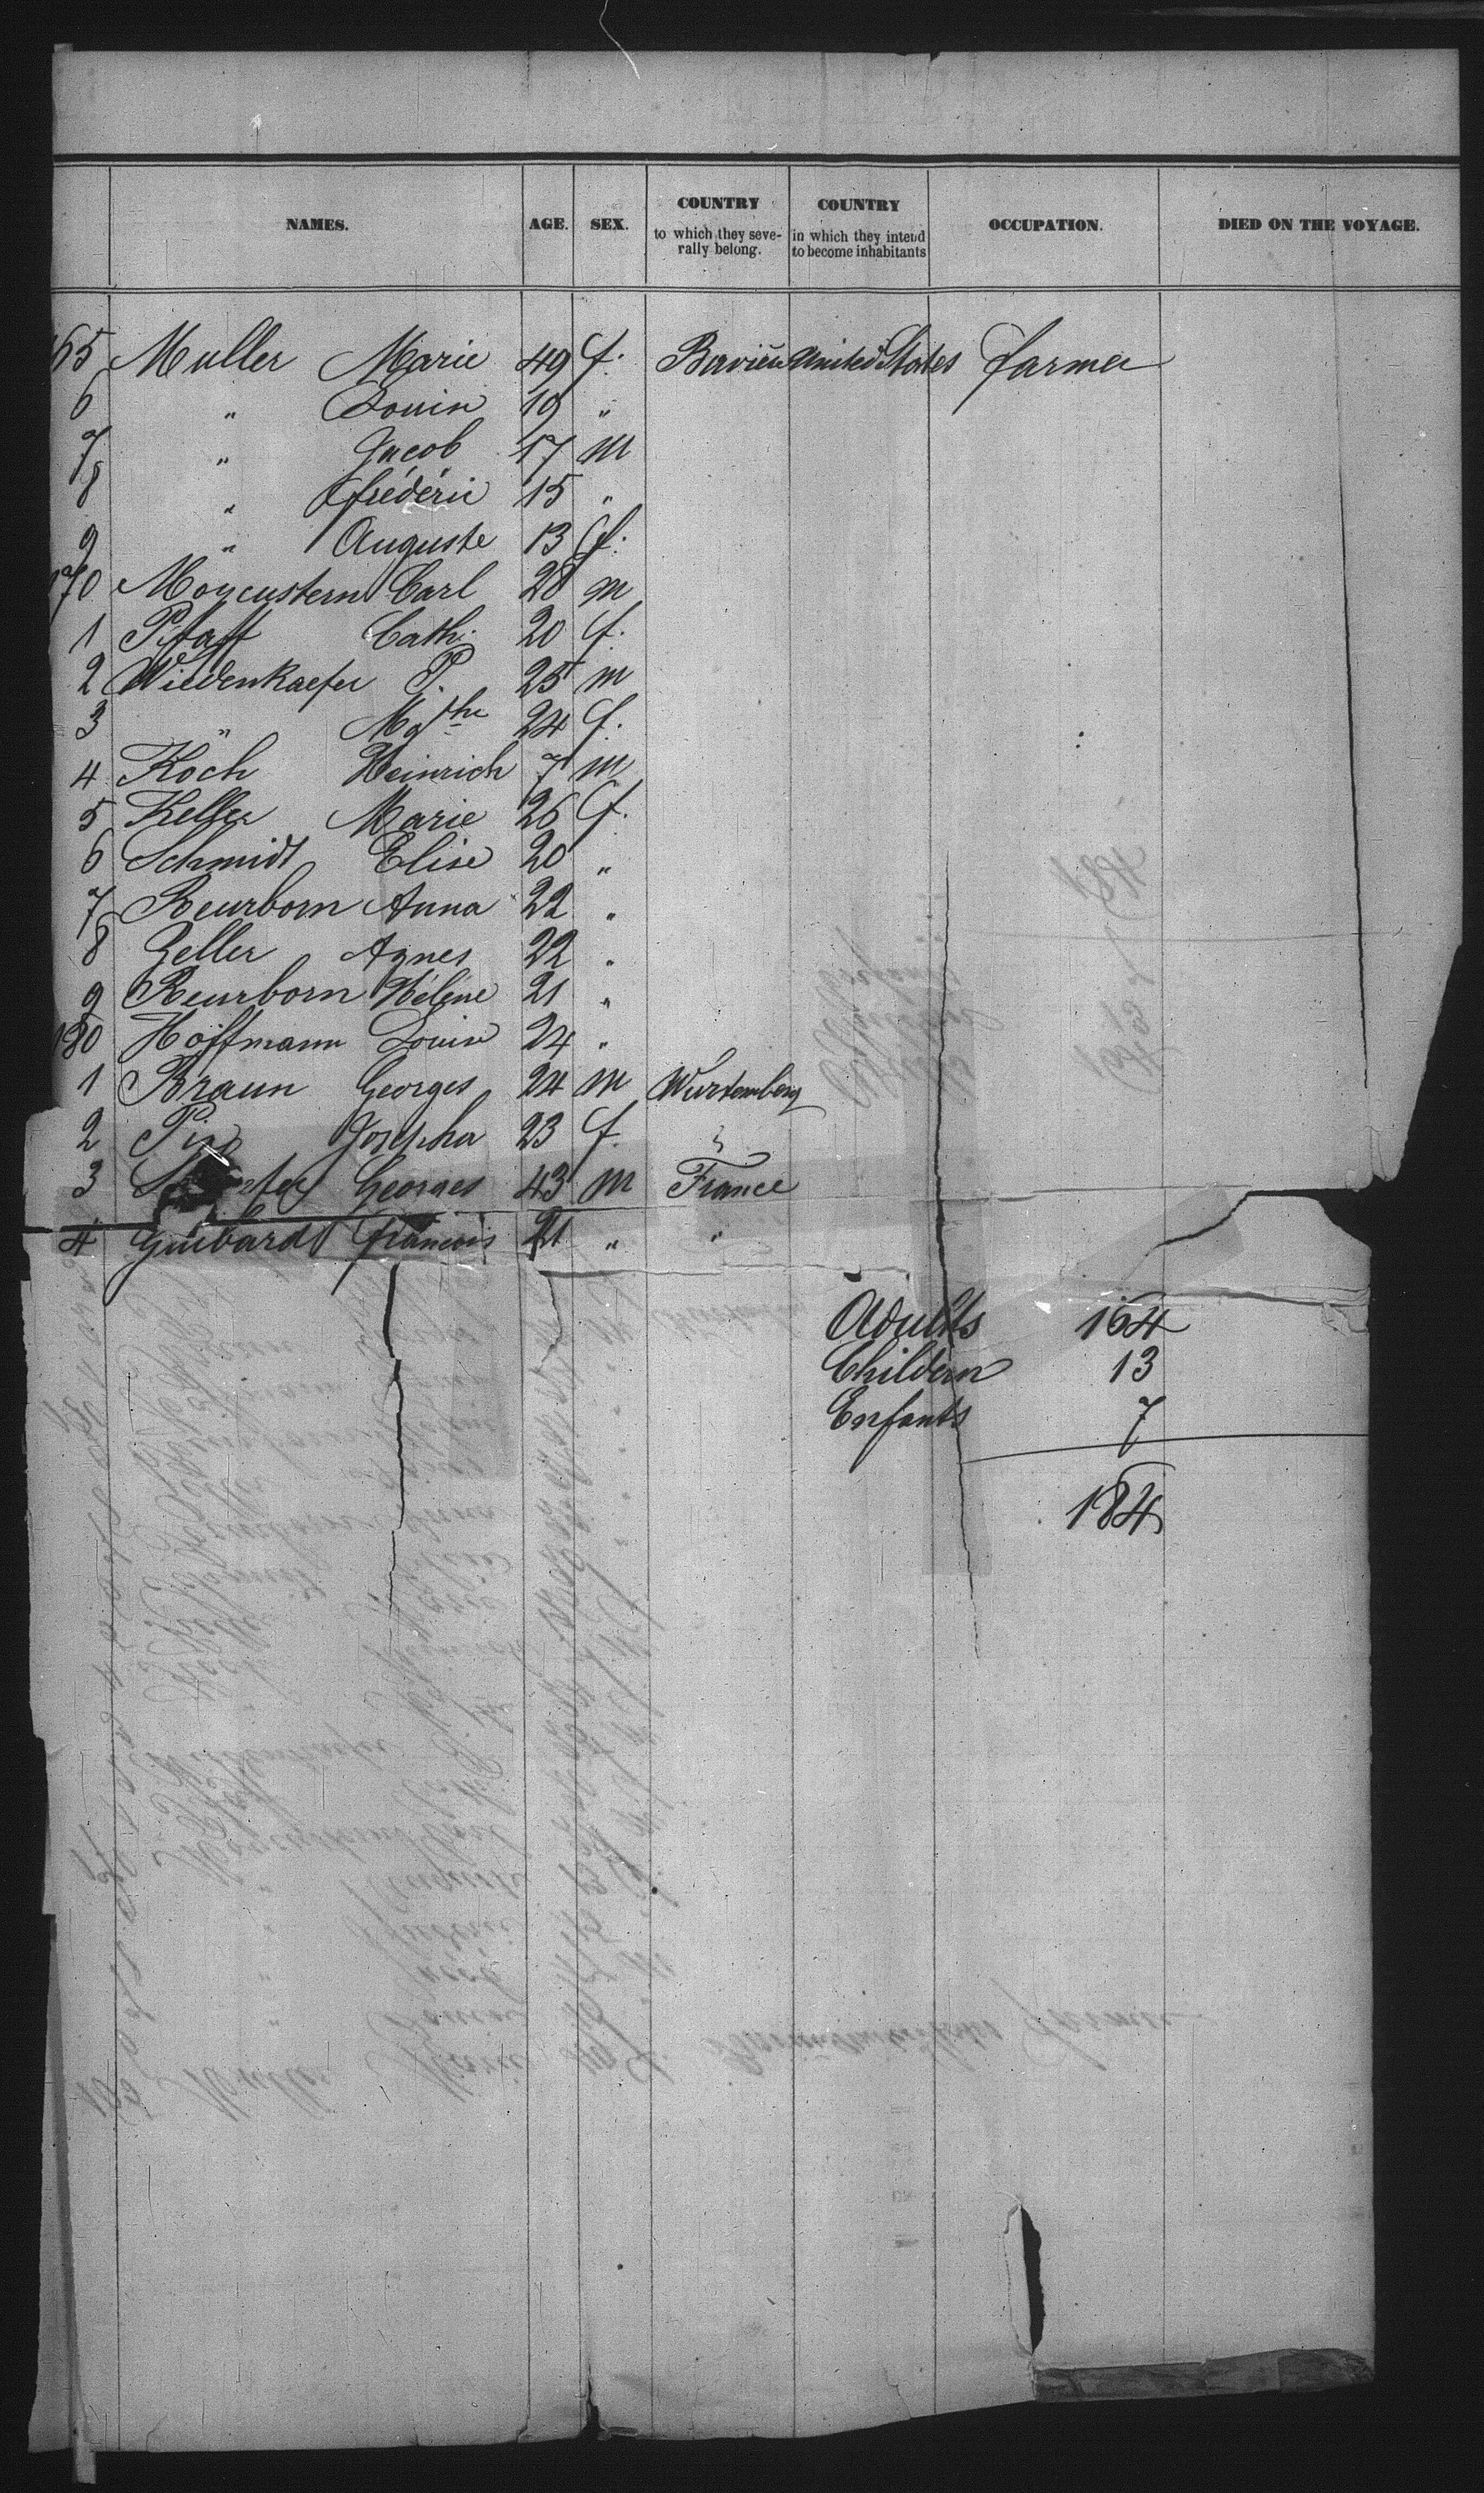 NAMES. AGE. SEX. COUNTRY to which they seve- rally belong. COUNTRY in which they intend to become inhabitants OCCUPATION. DIED ON THE VOYAGE.
165 Muller Marie 49 f. Bavière United States farmer
6 " Louise 19 "
7 " Jacob 17 m
8 " Frédéric 15 "
9 " Auguste 13 f.
170 Carl 28 m
1 Pfaff Cath. 20 f.
2 Wiedenkaefer P. 25 m
3 " Mgthe 24 f.
4 Koch Heinrich 7 m
5 Keller Marie 26 f.
6 Schmidt Elise 20 "
7 Reurborn Anna 22 "
8 Geller Agnes 22 "
9 Reurborn Hélène 21 "
180 Hoffmann Louise 24 "
1 Braun Georges 24 m Wurtemberg
2 Josepha 23 f. "
3 Georges 43 m France
4 Guibard francois 21 " "
Adults 164
Childern 13
Enfants 7
184